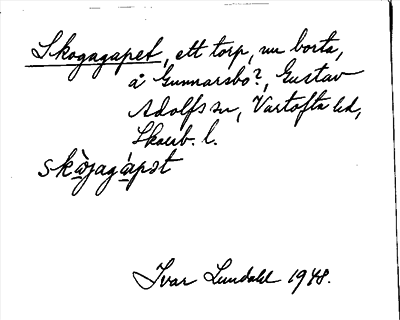 Skogagapet, ett torp, nu borta,
å Gunnarsbo?, Gustav
Adolfs sn, Vartofta hd,
Skarab. l.
skòjagápət
Ivar Lundahl 1948.